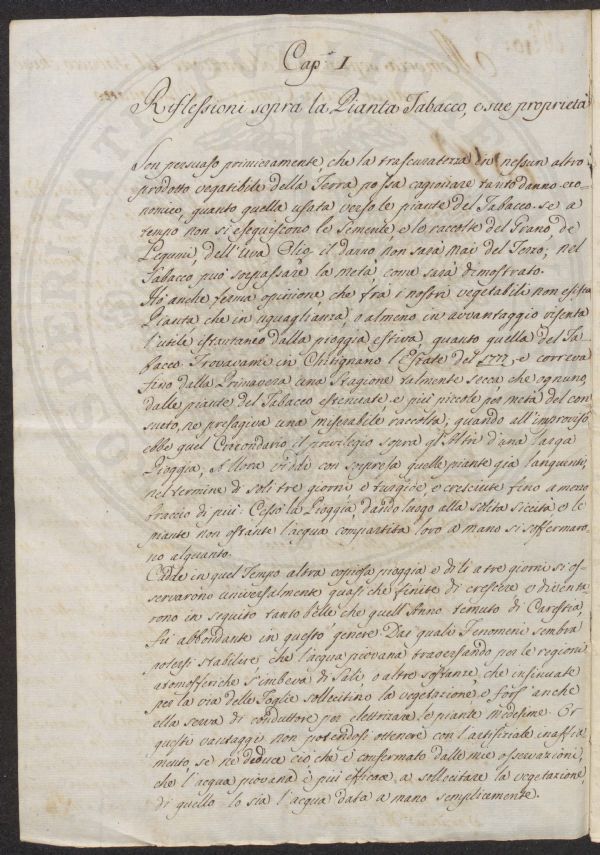 Cap.º I
Riflessioni sopra la Pianta Tabacco, e sue proprietà
Son persuaso primieramente che la trascuratezza in nessun altro
prodotto vegatibile della Terra possa cagionare tanto danno eco-
nomico, quanto quella usata verso le piante del Tabacco. se a
tempo non si eseguiscono le Semente, e le raccolte del Grano, de
Legumi, dell'uva Olio il danno non sarà mai del Terzo; nel
Tabacco può sorpassare la metà, come sarà dimostrato.
Ho anche ferma opinione che frà i nostri vegetabili non esista
Pianta che in uguaglianza, o almeno in avvantaggio risenta
l'utile istantaneo dalla pioggia estiva, quanto quella del Ta-
bacco. Trovavami in Chitignano l'Estate del 1777, e correva
fino dalla Primavera una Stagione talmente secca che ognuno,
dalle piante del Tabacco estenuate e più piccole per metà del con
sueto, ne presagiva una miserabile raccolta; quando all'improviso
ebbe quel Circondario il privilegio sopra gl'Altri d'una larga
Pioggia, Allora viddi con sorpresa quelle piante già languenti,
nel termine di soli tre giorni e e cresciute fino a mezzo
braccio di più. Cessò la Pioggia, dando luogo alla solita siccità e le
piante non ostante l'acqua compartita loro a mano si soffermaro-
no alquanto.
Cadde in quel Tempo altra copiosa pioggia e di lì a tre giorni si os-
servarono universalmente quasi che finite di crescere e diventa
rono in seguito tanto belle che quell'Anno temuto di Carestia,
fù abbondante in questo genere. Dai quali Fenomeni sembra
potersi stabilire, che l'acqua piovana traversando per le regioni
atomosferiche s'imbeva di Sali, o altre sostanze, che insinuate
per la via delle Foglie sollecitino la vegetazione, e fors'anche
ella serva di conduttore per elettrizare le piante midesime. Or
questi vantaggi non potendosi ottenere con l'artifiziale inaffia-
mento, se ne deduce ciò che è confermato dalle mie osservazioni,
che l'acqua piovana è più efficace, a sollecitare la vegetazione,
di quello lo sia l'acqua data a mano semplicemente.